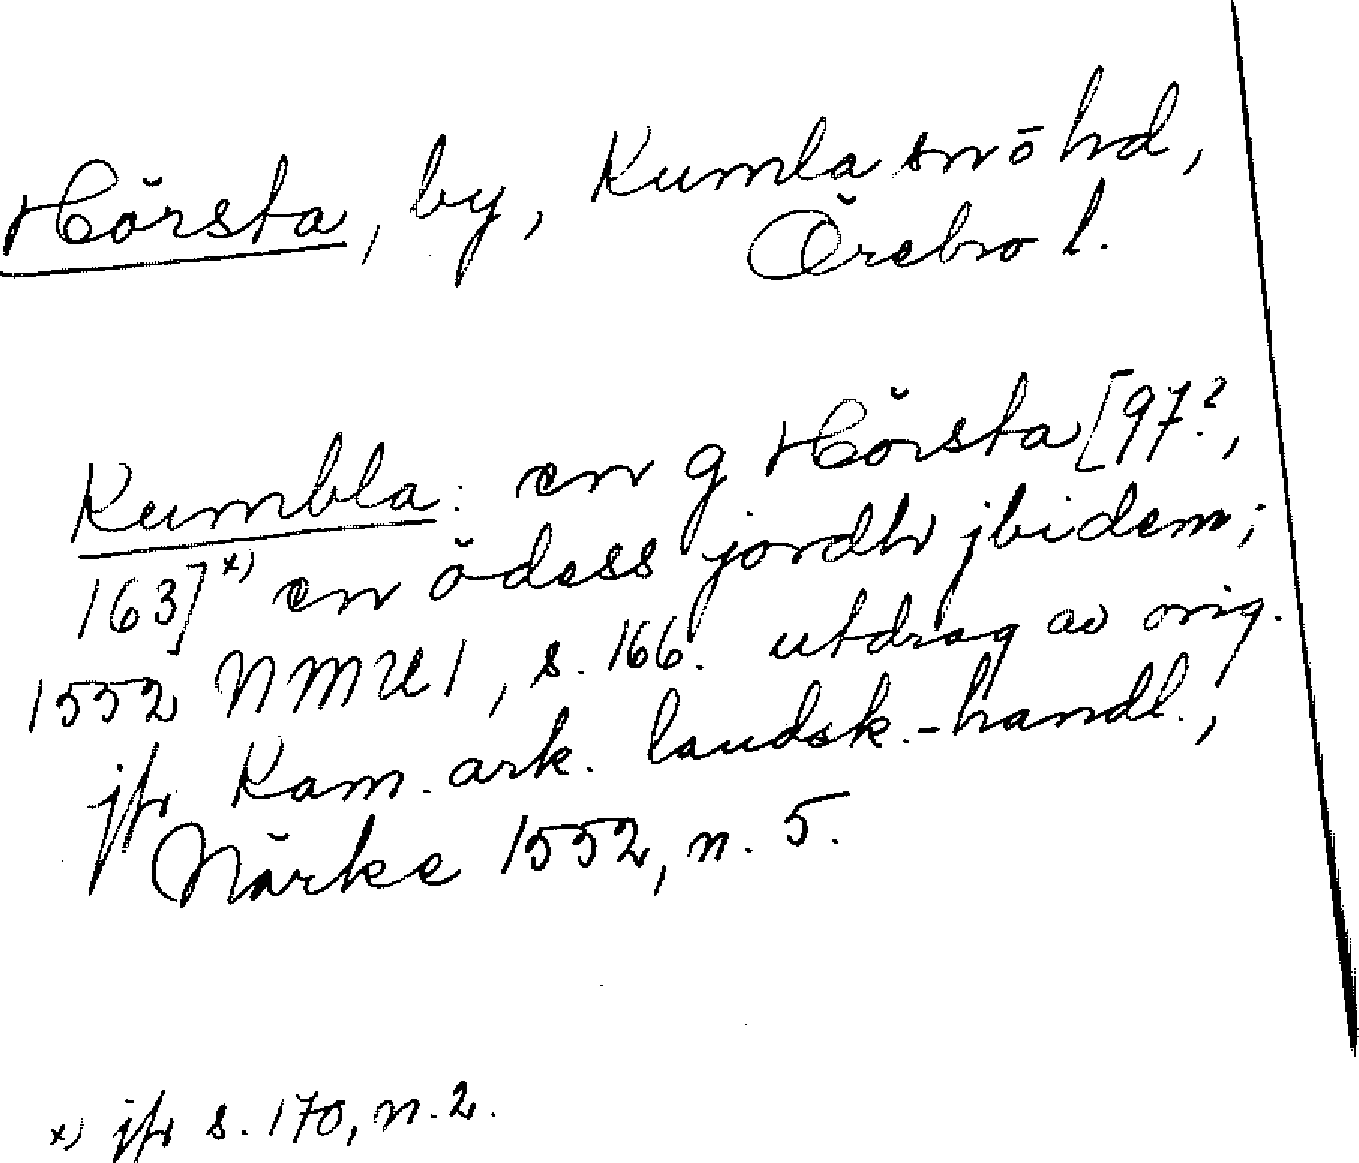 Hörsta, by, Kumla sn o hd,
Örebro l.
Kumbla: en g Hörsta [97?,
163]x) en ödess jordh jbidem;
1552 NMU 1, s. 166. utdrag av orig.
jfr Kam. ark. landsk.-handl.,
Närke 1552, n. 5.
x) jfr s. 170, n. 2.